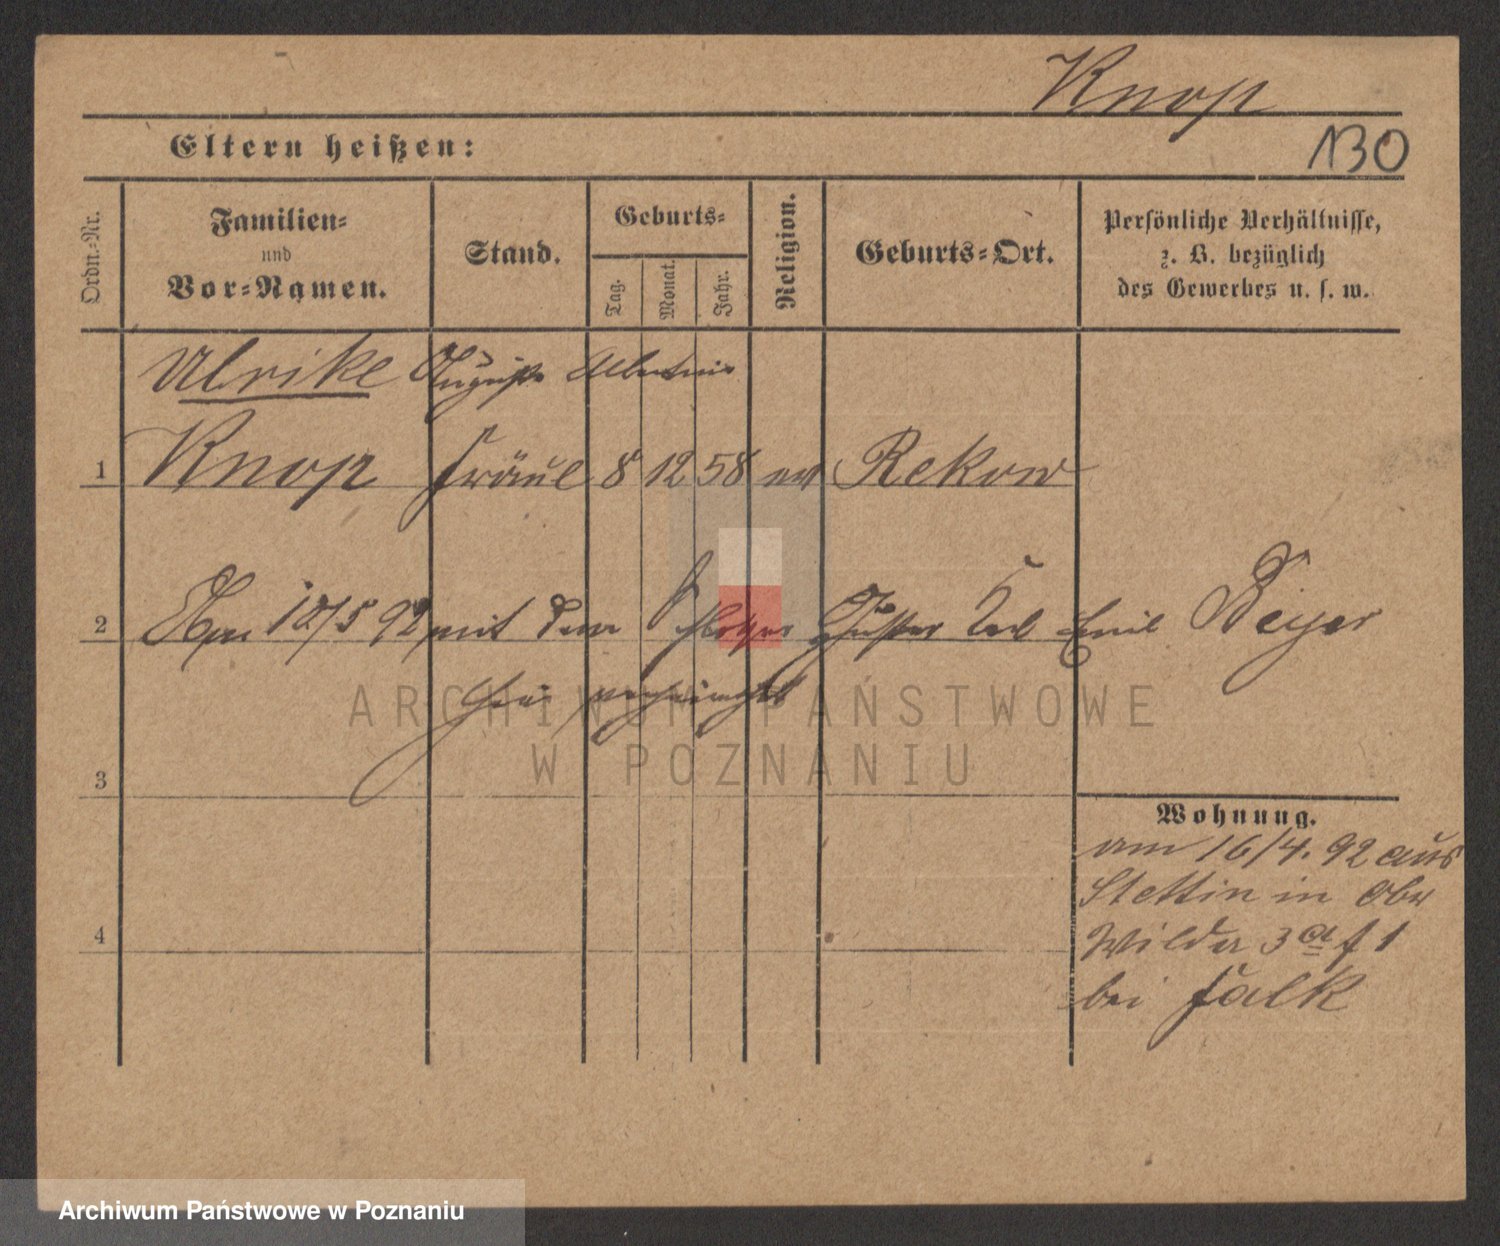 Knop
130
Eltern heißen:
Ordn.-Nr.
Familien-
und
Vor-Namen.
Stand.
Geburts-
Tag.
Monat.
Jahr.
Religion.
Geburts-Ort.
Persönliche Verhältnisse,
z. B. bezüglich
des Gewerbes u. s. w.
Ulrike Auguste Albertine
1 Knop Fräul 8 12 58 ev Rekow
2 12/5 92 mit dem Gustav Emil Beyer
hier
3
4
Wohnung.
am 16/4. 92 aus
Stettin in Ober
Wilda 3 a f 1
bei Falk
ARCHIWUM PAŃSTWOWE
W POZNANIU
Archiwum Państwowe w Poznaniu